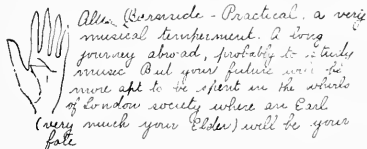 Allen Burnside - Practical. a very
musical temperment. A long
journey abroad, probably to study
music But your future will be
more apt to be spent in the whirls
of London society where an Earl
(very much your Elder) will be your
fate